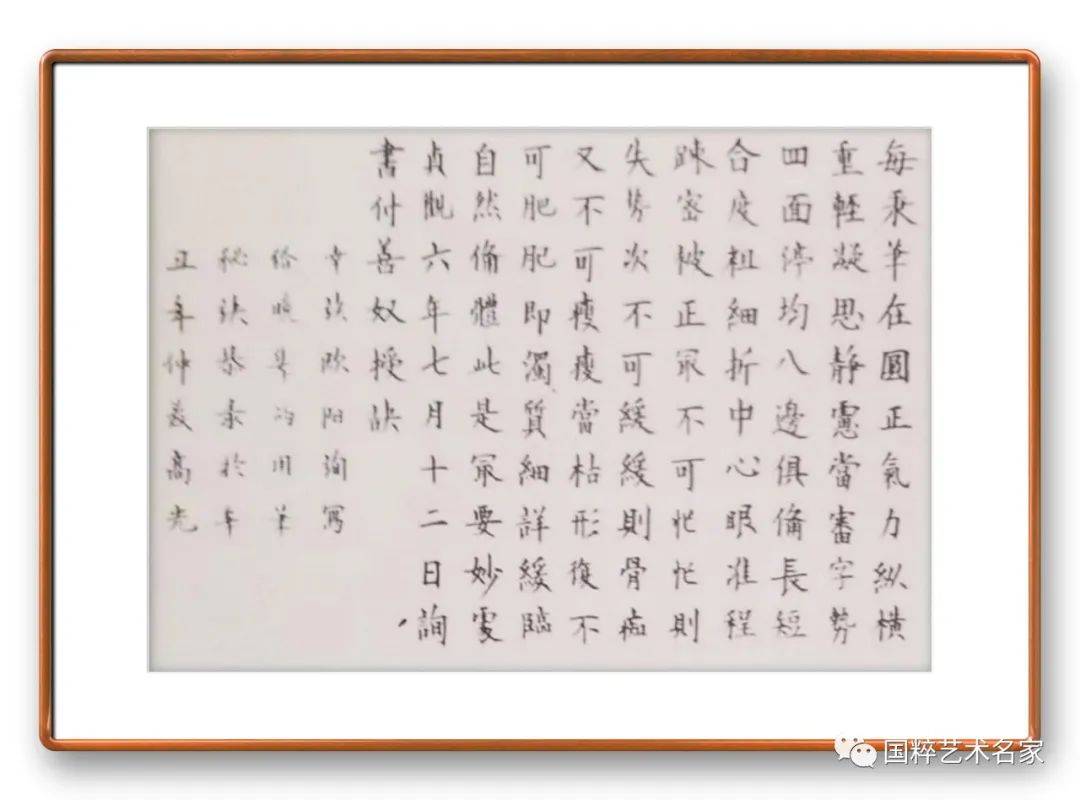 每秉筆在圓正氣力縱橫
重輕凝思靜慮當審字勢
四面停均八邊俱俻長短
合度粗細折中心眼准程
踈密被正冣不可忙忙則
失勢次不可緩緩則骨痴
又不可瘦瘦當枯形復不
可肥肥即濁質細詳緩臨
自然俻體此是冣要妙處
貞觀六年七月十二日詢
書付善奴授訣
幸欧阳詢寫
给晚辈的用筆
秘訣恭录於辛
丑年仲高光
国粹艺术名家